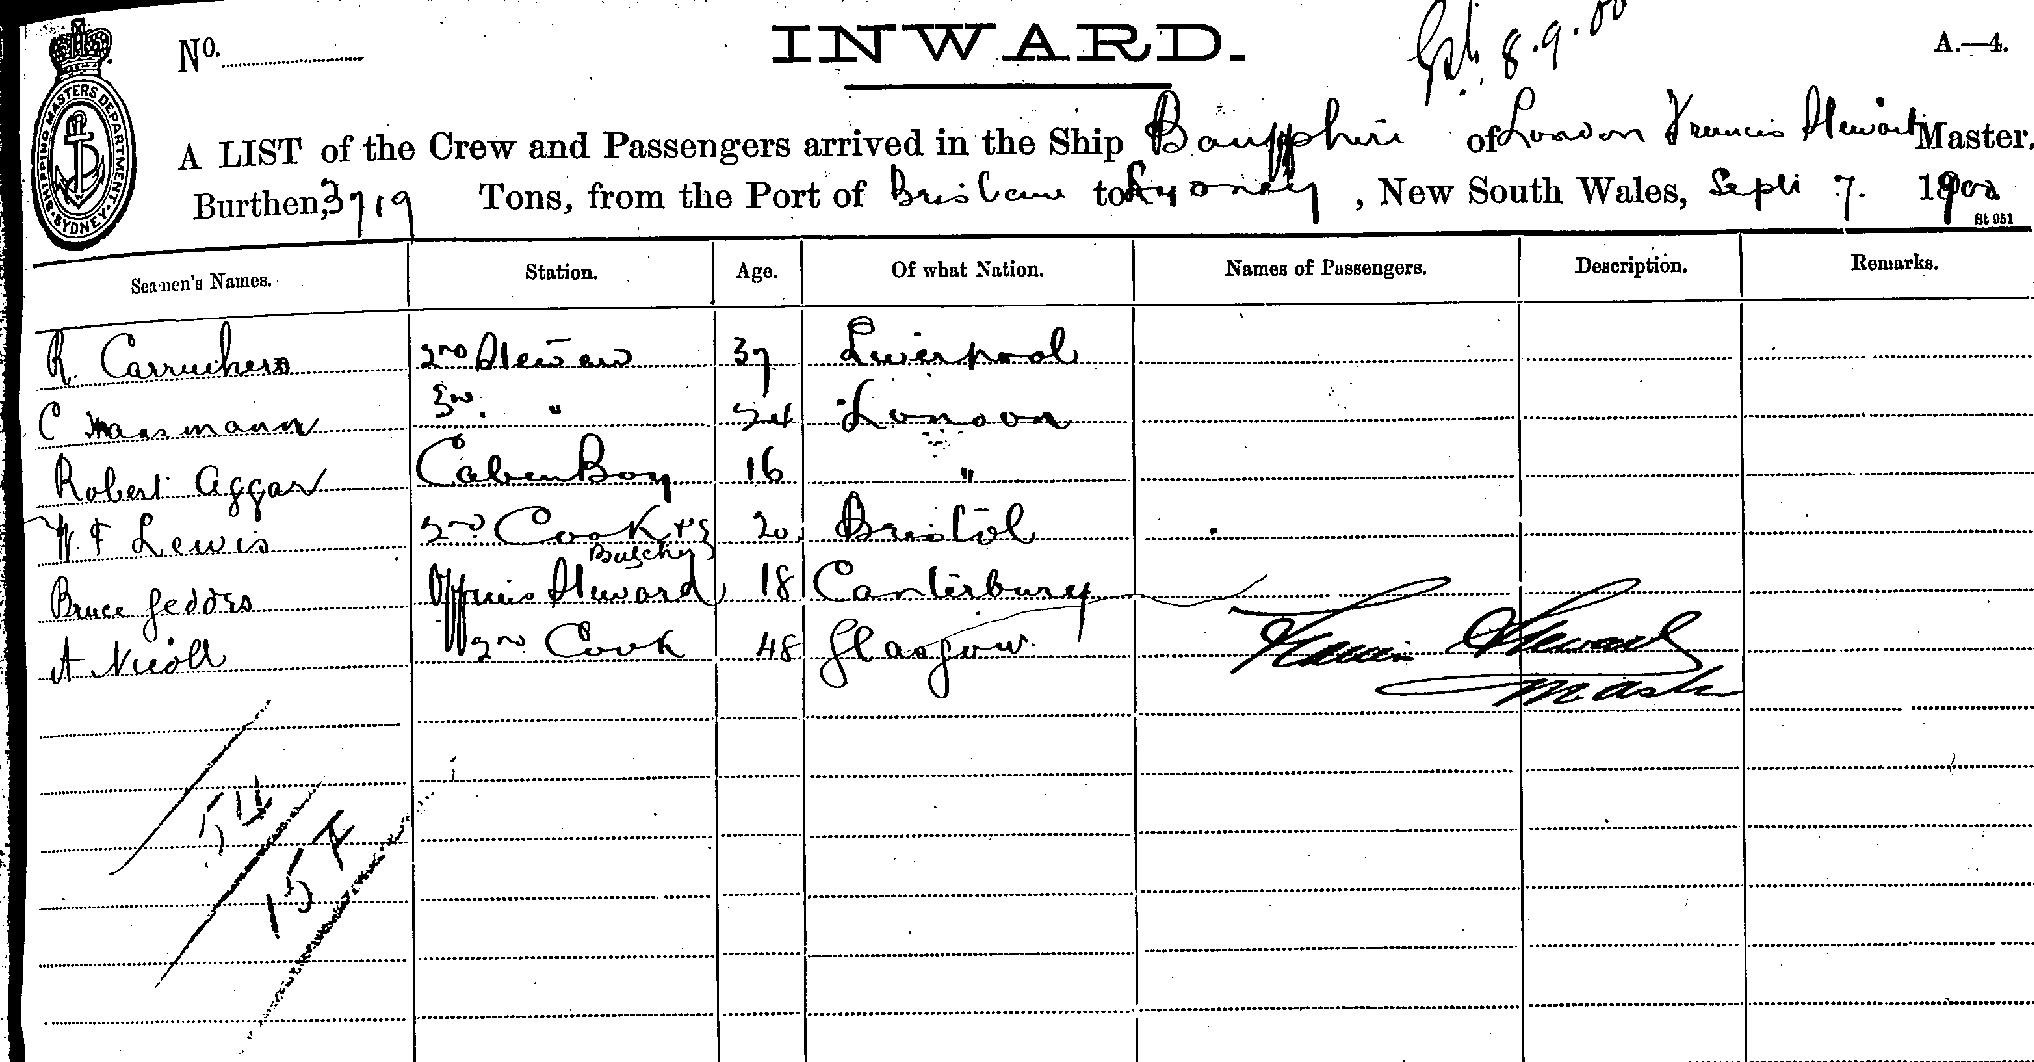 No. INWARD. 8.9.00 A.—4.
SHIPPING MASTERS DEPARTMENT. SYDNEY.
A LIST of the Crew and Passengers arrived in the Ship Banffshire of London Francis Steward Master,
Burthen, 3719 Tons, from the Port of Brisbane to Sydney, New South Wales, Sept 7. 1900
St 951
Seamen's Names. Station. Age. Of what Nation. Names of Passengers. Description. Remarks.
R. Carruthers 2nd Steward 37 Liverpool
C 3rd " 24 London
Robert Aggar Cabin Boy 16 "
W. F Lewis 2nd Cook & 20 Bristol
Butcher
Bruce Geddes Officers Steward 18 Canterbury
A Nicoll 2nd Cook 48 Glasgow
Francis Steward
Master
54
15 F